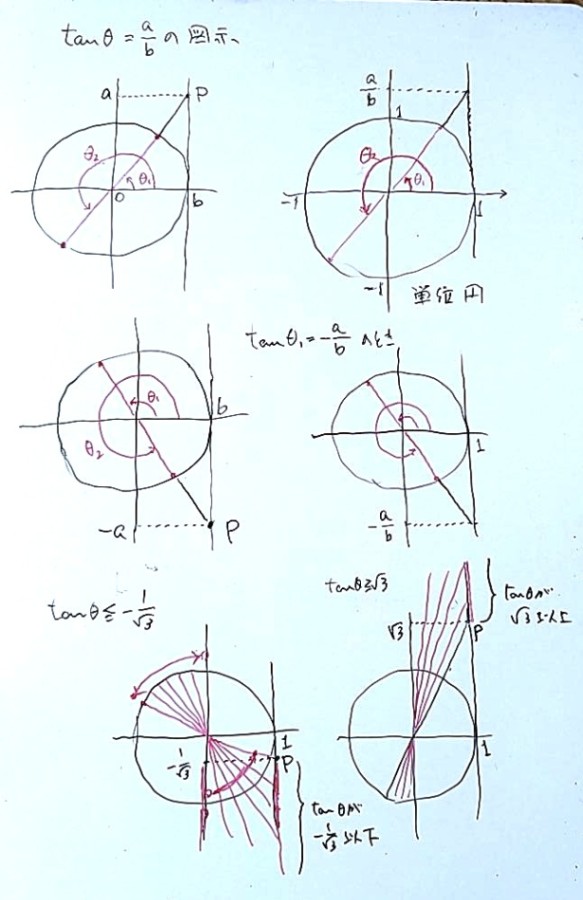 tanθ = a/b の図示
a P
θ₂ θ₁
O b
a/b
1
θ₂ θ₁
-1 1
-1
単位円
tanθ₁ = -a/b のとき
θ₁ b
θ₂
-a P
1
-a/b
tanθ ≦ -1/√3
1
-1/√3 P
tanθが
-1/√3 以下
tanθ≧√3
√3 P
tanθが
√3以上
1